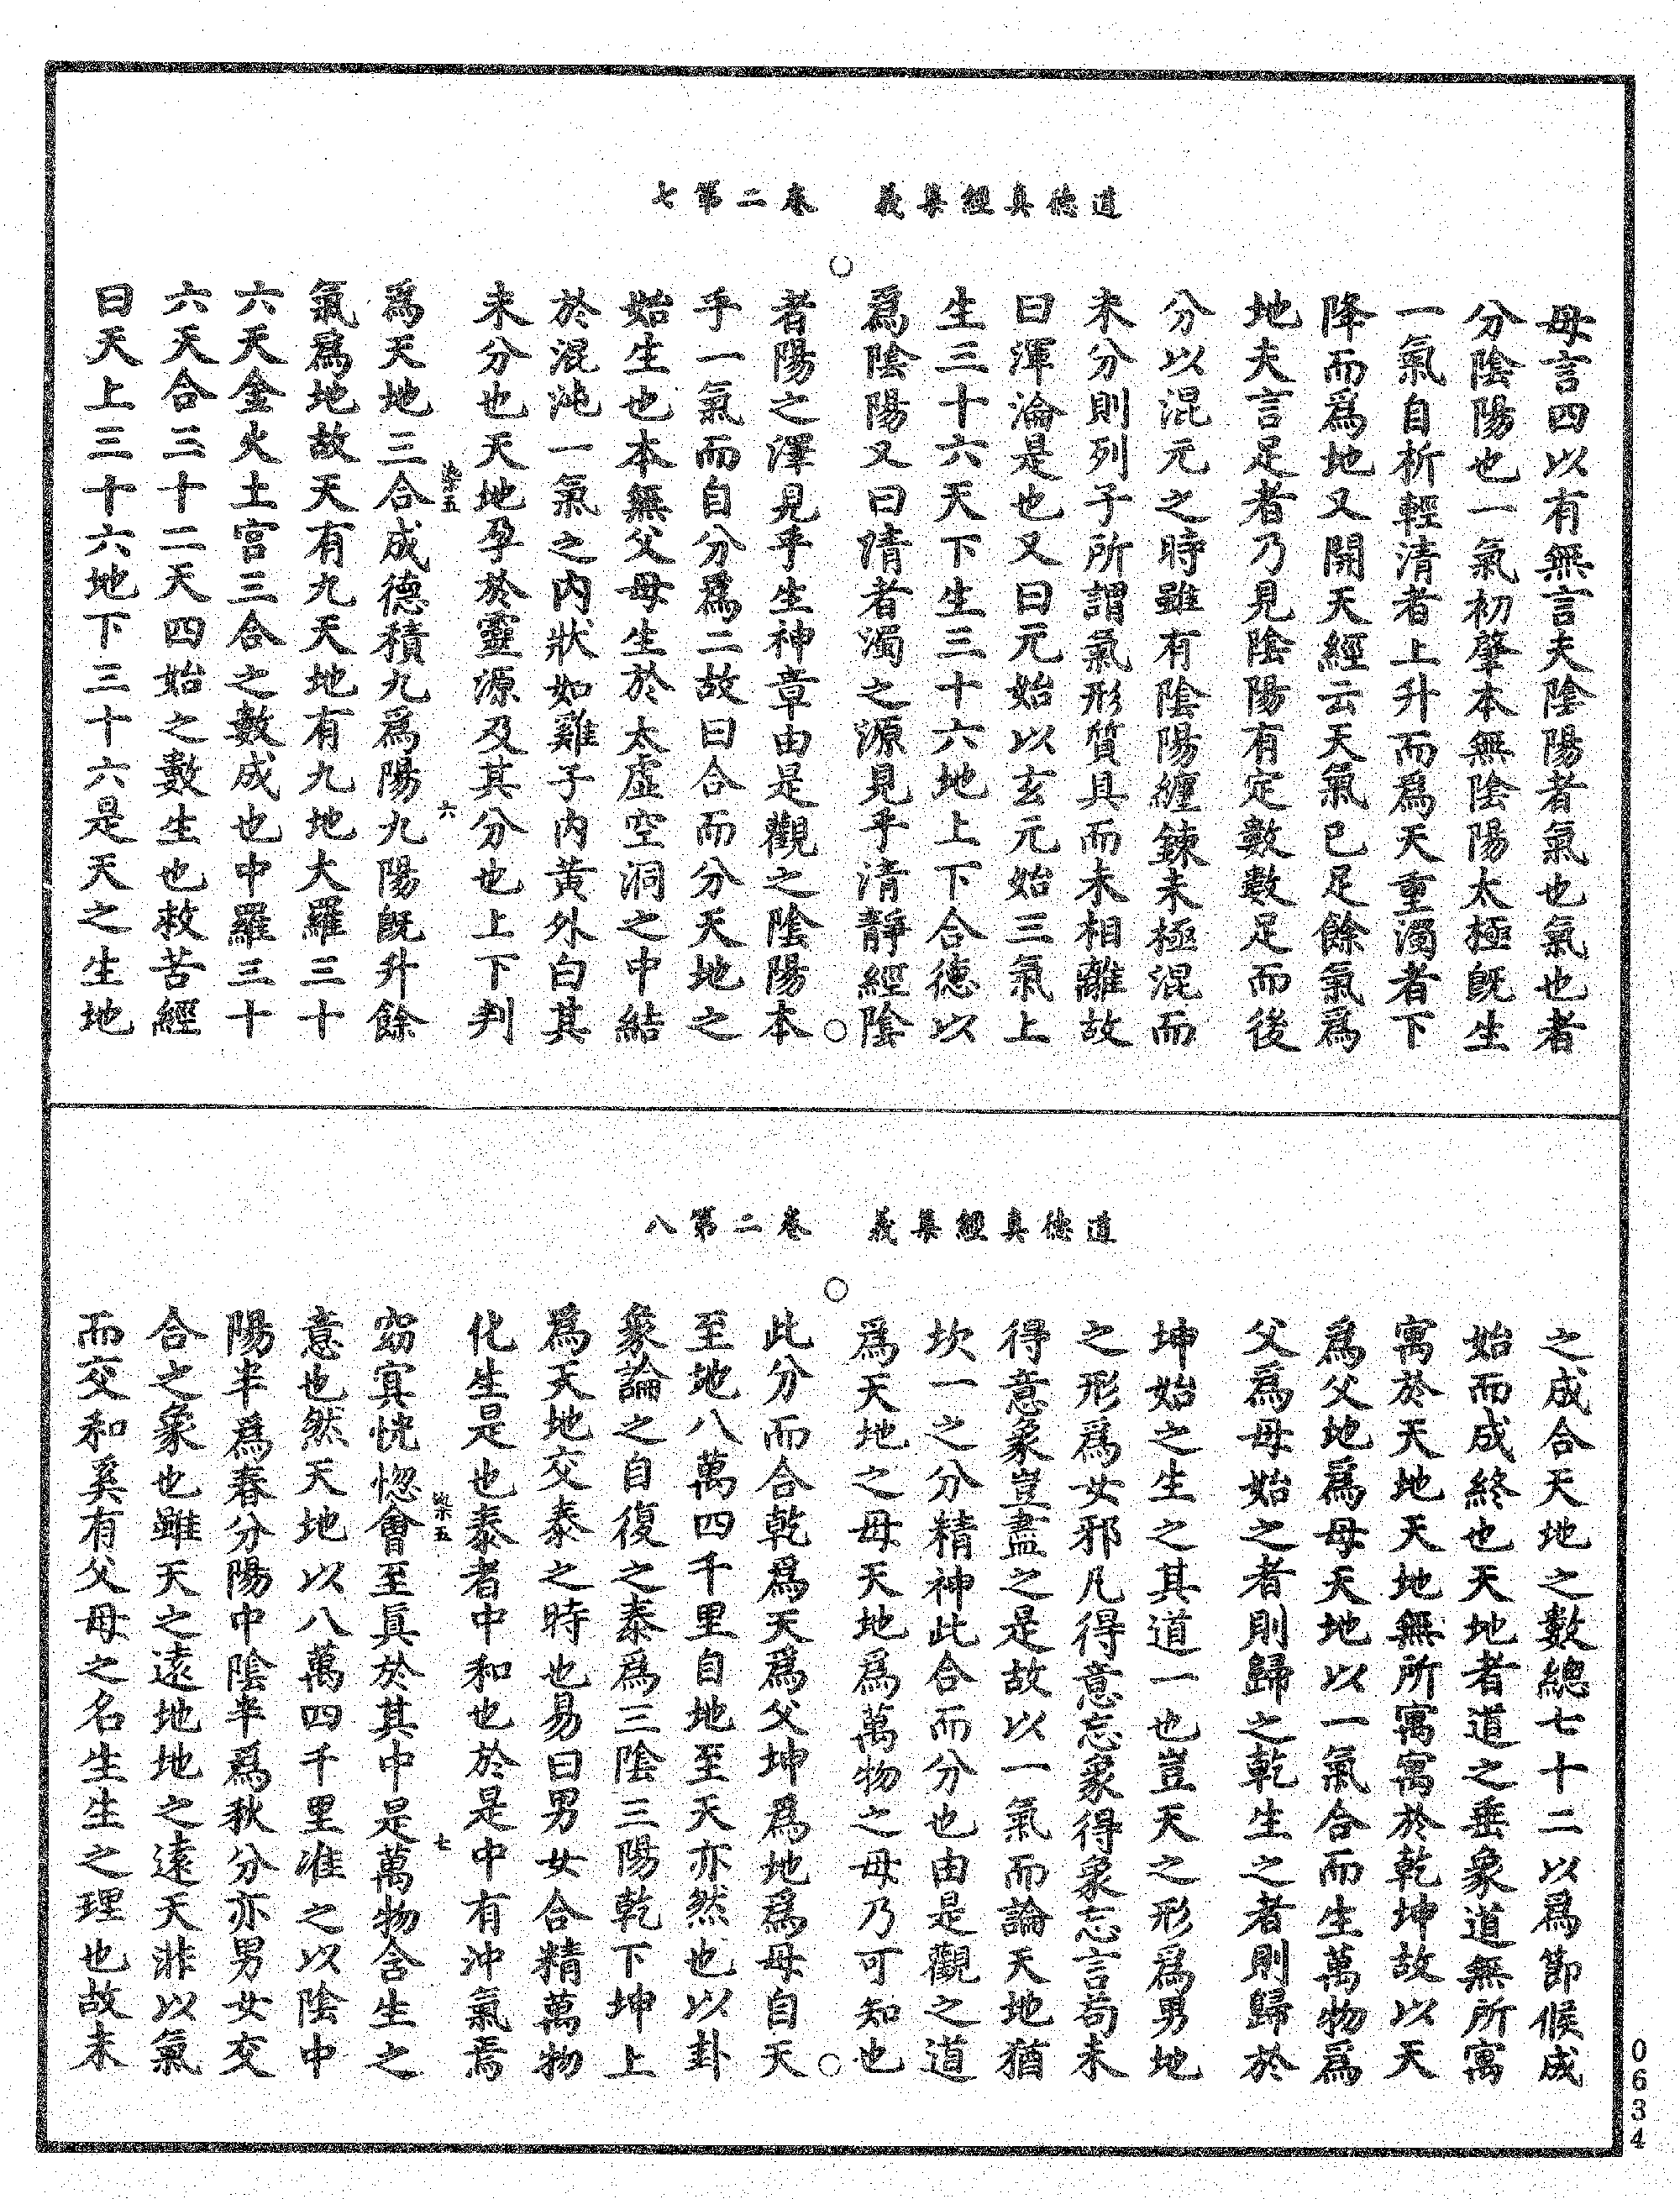 道德真經集義　卷二第七
母言四以有無言夫陰陽者氣也氣也者
分陰陽也一氣初肇本無陰陽太極旣生
一氣自析輕清者上升而爲天重濁者下
降而爲地又開天經云天氣已足餘氣爲
地夫言足者乃見陰陽有定數數足而後
分以混元之時雖有陰陽纏鍊未極混而
未分則列子所謂氣形質具而未相離故
曰渾淪是也又曰元始以玄元始三氣上
生三十六天下生三十六地上下合德以
爲陰陽又曰清者濁之源見乎清靜經陰
者陽之澤見乎生神章由是觀之陰陽本
乎一氣而自分爲二故曰合而分天地之
始生也本無父母生於太虛空洞之中結
於混沌一氣之內狀如雞子內黃外白其
未分也天地孕於靈源及其分也上下判
染五　六
爲天地三合成德積九爲陽九陽旣升餘
氣爲地故天有九天地有九地大羅三十
六天金火土宮三合之數成也中羅三十
六天合三十二天四始之數生也救苦經
曰天上三十六地下三十六是天之生地
道德真經集義　卷二第八
之成合天地之數總七十二以爲節候成
始而成終也天地者道之垂象道無所寓
寓於天地天地無所寓寓於乾坤故以天
爲父地爲母天地以一氣合而生萬物爲
父爲母始之者則歸之乾生之者則歸於
坤始之生之其道一也豈天之形爲男地
之形爲女邪凡得意忘象得象忘言苟未
得意象豈盡之是故以一氣而論天地猶
坎一之分精神此合而分也由是觀之道
爲天地之母天地爲萬物之母乃可知也
此分而合乾爲天爲父坤爲地爲母自天
至地八萬四千里自地至天亦然也以卦
象論之自復之泰爲三陰三陽乾下坤上
爲天地交泰之時也易曰男女合精萬物
化生是也泰者中和也於是中有沖氣焉
染五　七
窈冥恍惚會至眞於其中是萬物含生之
意也然天地以八萬四千里准之以陰中
陽半爲春分陽中陰半爲秋分亦男女交
合之象也雖天之遠地地之遠天非以氣
而交和奚有父母之名生生之理也故未
0634